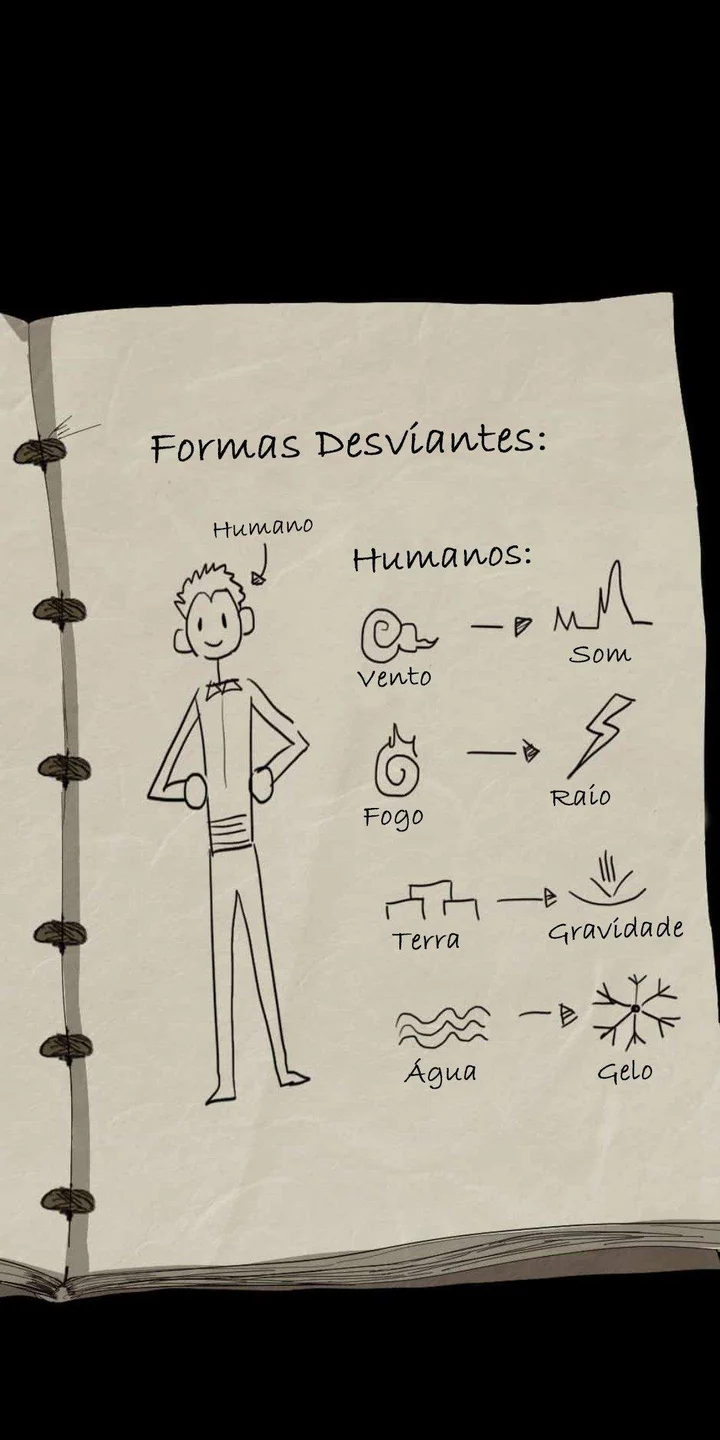 Formas Desviantes:
Humano
Humanos:
Vento
Som
Fogo
Raio
Terra
Gravidade
Água
Gelo